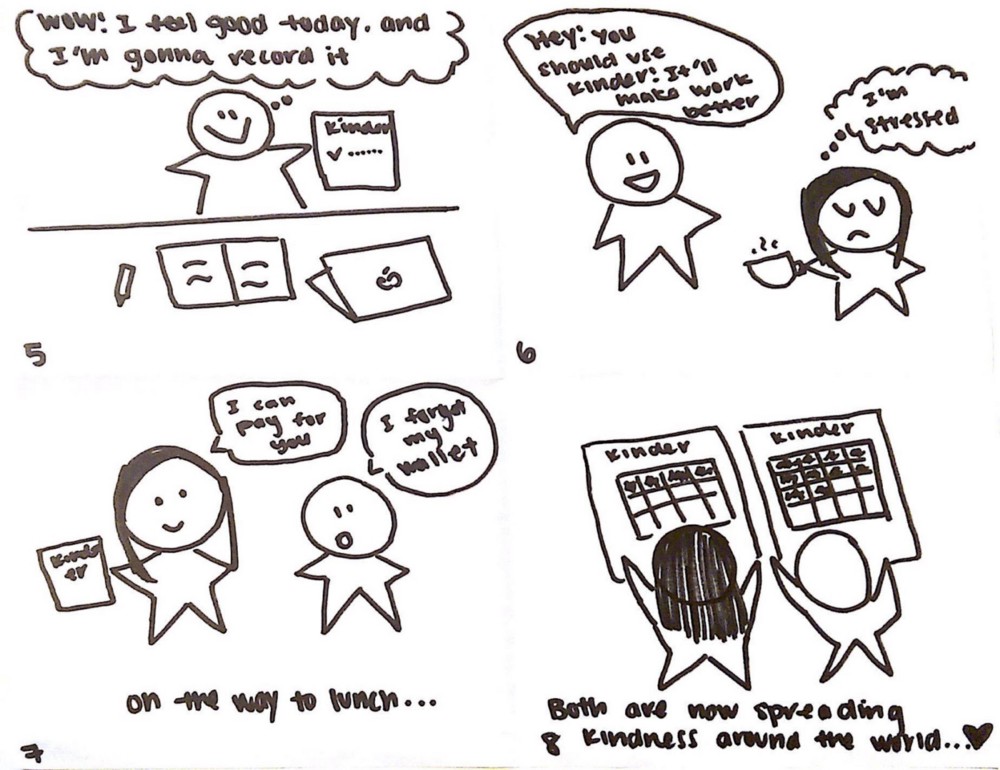 WOW! I feel good today, and
I'm gonna record it
Kinder
5
Hey! You
should use
kinder! It'll
make work
better
I'm
stressed
6
I can
pay for
you
I forgot
my
wallet
Kind
er
on the way to lunch...
7
kinder
kinder
Both are now spreading
kindness around the world...
8